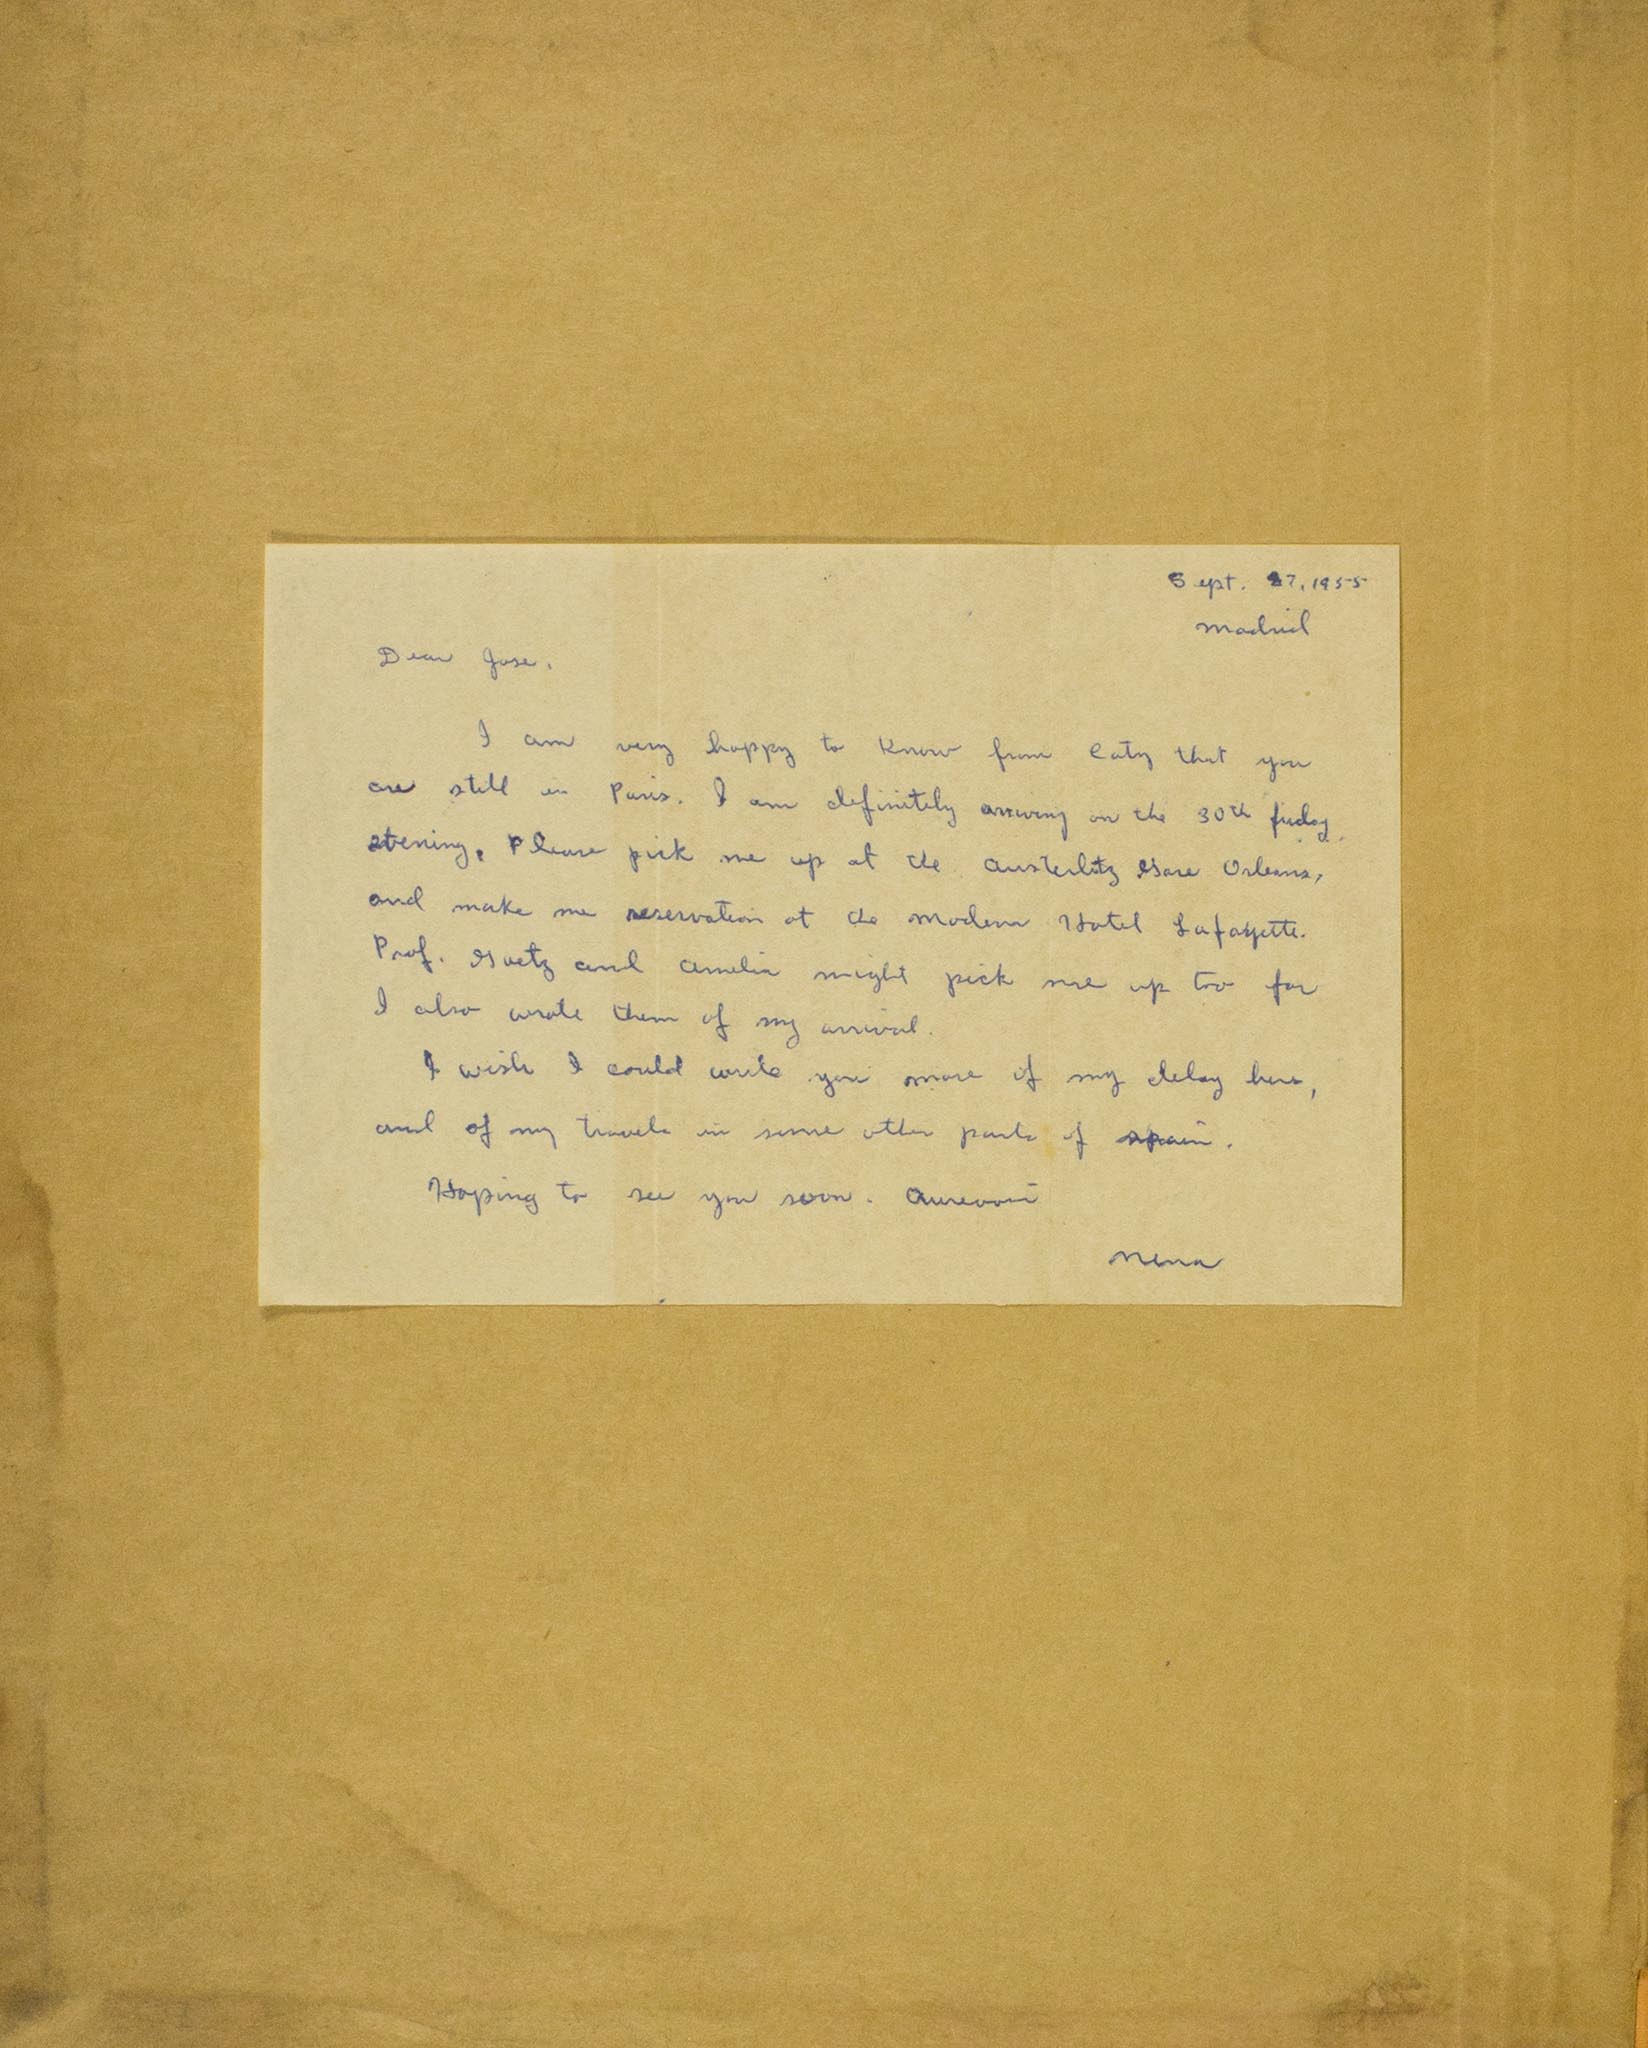 Sept. 27, 1955
Madrid
Dear Jose,
I am very happy to know from Caty that you
are still in Paris. I am definitely arriving on the 30th friday
evening, Please pick me up at the Austerlitz Gare Orleans,
and make me reservation at the Modern Hotel Lafayette.
Prof. Goetz and Amelia might pick me up too for
I also wrote them of my arrival.
I wish I could write you more of my delay here,
and of my travels in some other parts of spain.
Hoping to see you soon. Aurevoir
Nena